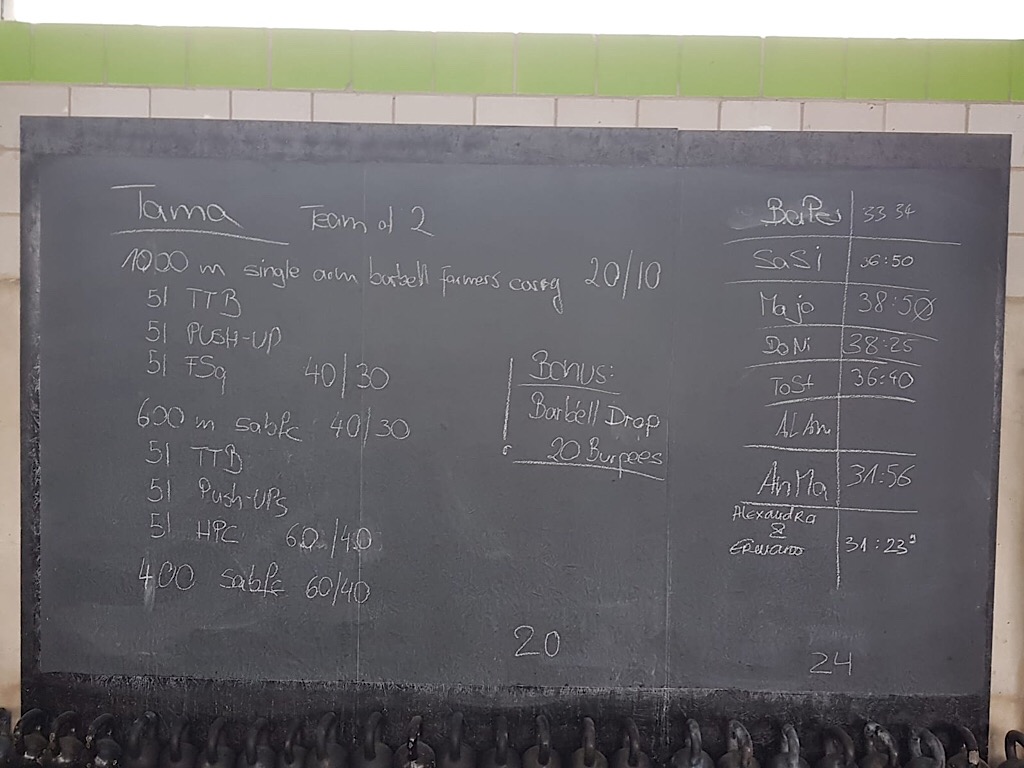 Tama
Team of 2
1000 m single arm barbell farmers carry 20/10
51 TTB
51 PUSH-UP
51 FSq 40/30
600 m sabfc 40/30
51 TTB
51 PUSH-UPS
51 HPC 60/40
400 sabfc 60/40
Bonus:
Barbell Drop
20 Burpees
20
BaPe 33 34
SaSi 36:50
Majo 38:50
DoNi 38:25
ToSt 36:40
AnMa 31:56
Alexandra
&
31:23
24